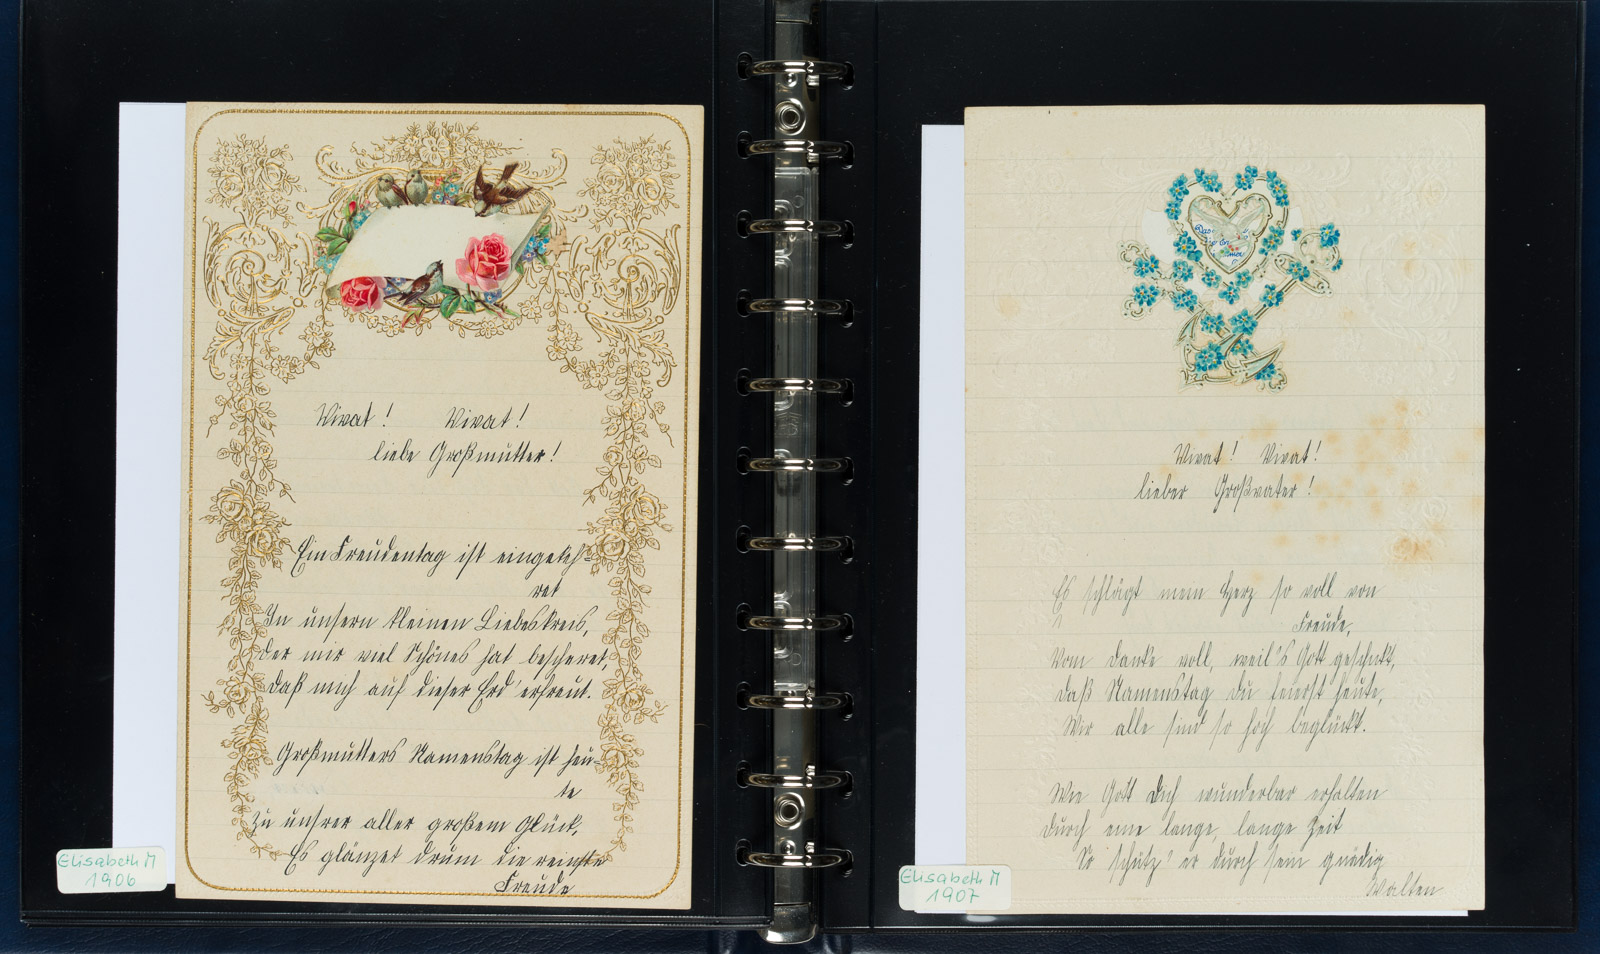 Vivat! Vivat!
liebe Großmutter!
Ein Freudentag ist eingekeh-
ret
In unsern kleinen Liebeskreis,
Der mir viel Schönes hat bescheret,
Daß mich auf dieser Erd' erfreut.
Großmutters Namenstag ist heu-
te
Zu unsrer aller großem Glück,
Es glänzet drum die reinste
Freude
Elisabeth M
1906
Das
Vivat! Vivat!
lieber Großvater!
Es schlägt mein Herz so voll von
Freude,
Vom Danke voll, weil's Gott geschickt,
Daß Namenstag Du feierst heute,
Wir alle sind so hoch beglückt.
Wie Gott Dich wunderbar erhalten
Durch eine lange, lange Zeit
So schütz' er durch sein gnädig
Walten
Elisabeth M
1907